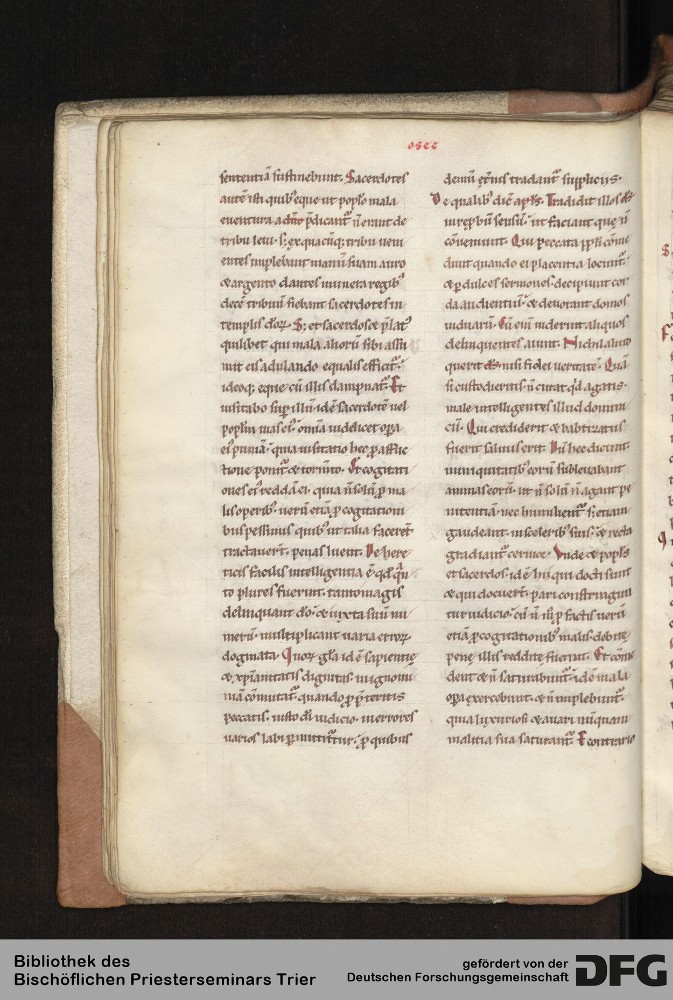 osee
sententiā sustinebunt. Sacerdotes
autē isti quib; eque ut poplo mala
euentura a dño p̄dicant᷑ ñ erant de
tribu leui. s; ex quacūq; tribu ueni
entes implebant manū suam auro
& argento dantes munera regib;
decē tribuū fiebant sacerdotes in
templis
quilibet qui mala alioru sibi assu
mit eis adulando equalis efficit᷑.
ideoq; eque cū illis dampnat᷑. Et
uisitabo sup illū idē sacerdotē uel
poplm uias ei᷒. omia uidelicet opa
ei᷒ puniā. quia uisitatio hec p afflic
tione ponit᷑ & tormto. Et cogitati
ones ei᷒ reddā ei. quia ñ solū p ma
lis operib;. uerū etiā p cogitationi
bus pessimis quib; ut talia facerēt
tractauert. penas luent. De here
ticis facilis intelligentia ē. qd qn
to plures fuerint. tanto magis
delinquant dō. & iuxta suū nu
merū multiplicant uaria erroꝝ
dogmata. Quoꝝ gla idē sapientię
& xp̄ianitatis dignitas in ignomi
niā cōmutat᷑. quando p p̄teritis
peccatis. iusto di iudicio. in errores
uarios labi pmittunt᷑. p quibus
demū et̄nis tradant᷑ suppliciis.
De qualib; dic̄ apl̄s. Tradidit illos ds
in repbū sensū. ut faciant que ñ
cōueniunt. Qui peccata ppl̄i come
dunt quando ei placentia locunt᷑.
& p dulces sermones decipiunt cor
da audientiū. & deuorant domos
uiduarū. Cū eni uiderint aliquos
delinquentes aiunt. Nichil aliud
querit ds nisi fidei ueritatē. Quā
si custodieritis. ñ curat qd agatis.
male intelligentes illud domini
cū. Qui crediderit & babtizatus
fuerit saluus erit. Dū hec dicunt.
in iniquitatib; eorū subleuabant
animas eorū. ut ñ solū ñ agant pe
nitentiā. nec humilient᷑. s; etiam
gaudeant in scelerib; suis. & recta
gradiant᷑ ceruice. Vnde & popl̄s
et sacerdos. idē hii qui docti sunt
& qui docuert. pari constringun
tur iudicio. cū ñ m̄ p factis uerū
etiā p cogitationib; malis debite
pene illis reddite fuerint. Et come
dent & ñ saturabunt᷑. idē mala
opa exercebunt. & ñ implebunt᷑.
quia luxuriosi & auari nunquam
malitia sua saturant᷑. E contrario
Bibliothek des
Bischöflichen Priesterseminars Trier
gefördert von der
Deutschen Forschungsgemeinschaft
DFG